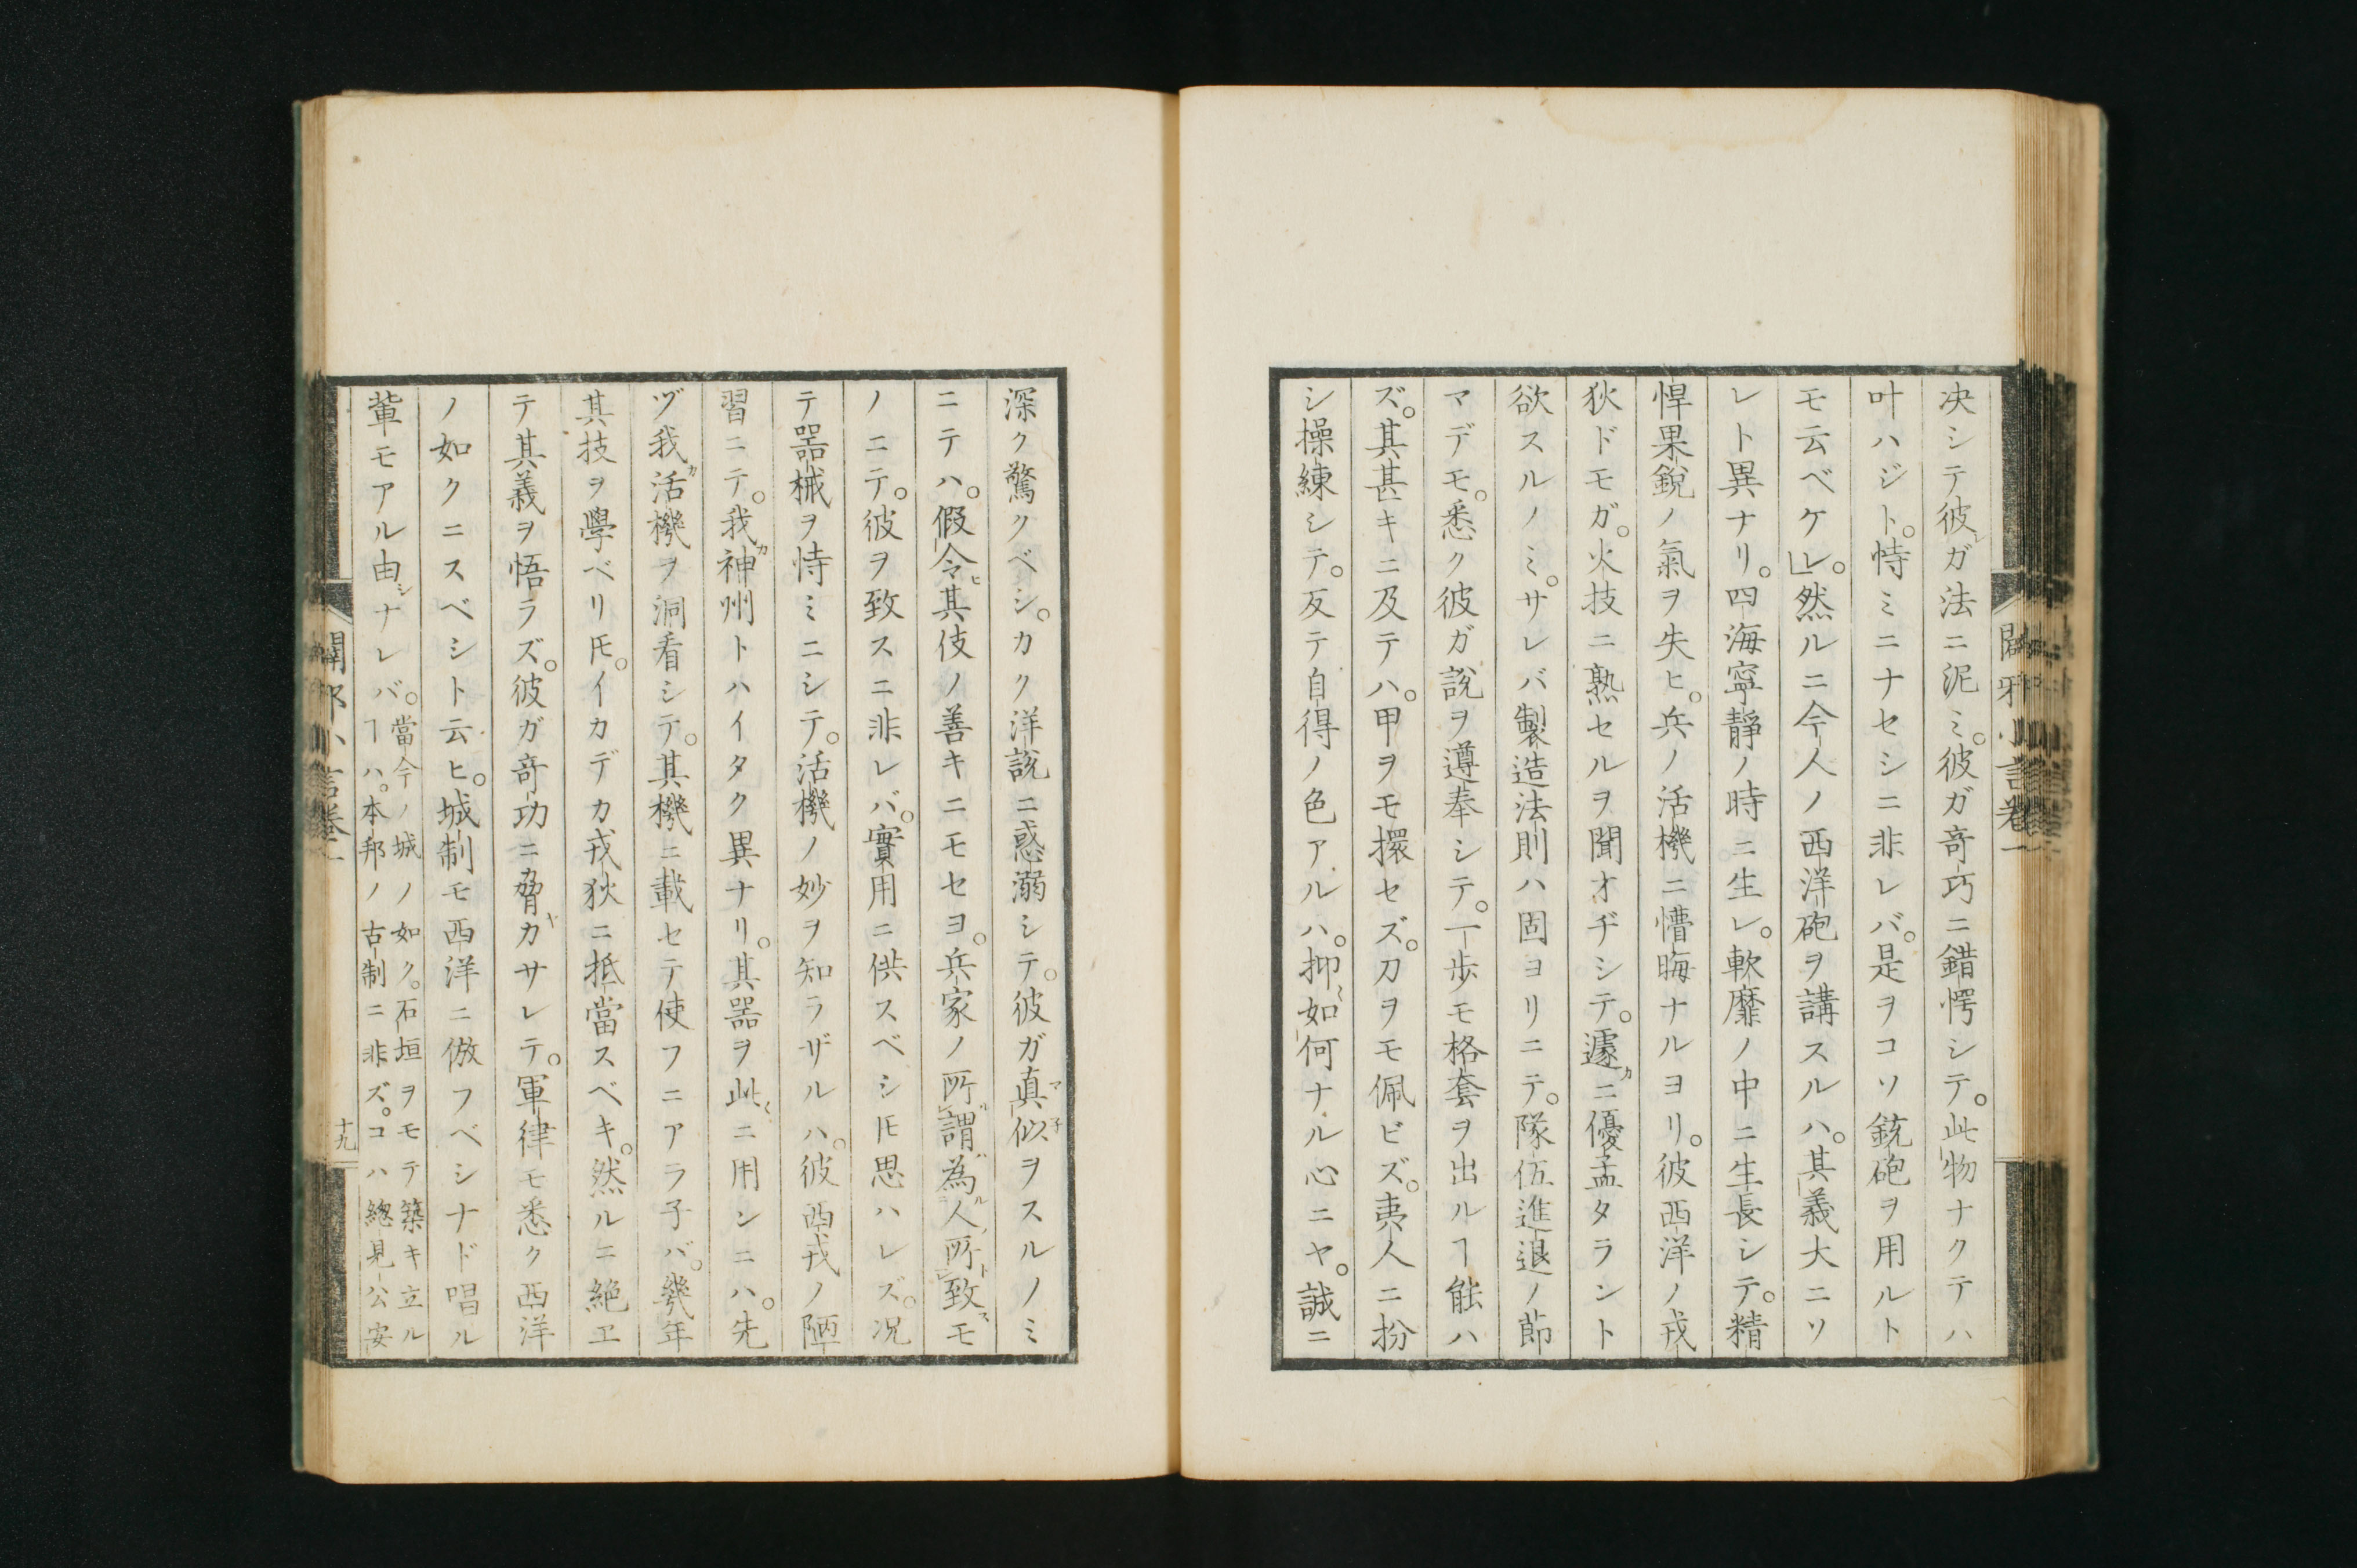 決シテ彼ガ法ニ泥ミ。彼ガ竒巧ニ錯愕シテ。此物ナクテハ
叶ハジト。恃ミニナセシニ非レバ。是ヲコソ銃砲ヲ用ルト
モ云ベケレ。然ルニ今人ノ西洋砲ヲ講スルハ。其義大ニソ
レト異ナリ。四海寧靜ノ時ニ生レ。軟靡ノ中ニ生長シテ。精
悍果銳ノ氣ヲ失ヒ。兵ノ活機ニ懵晦ナルヨリ。彼西洋ノ戎
狄ドモガ。火技ニ熟セルヲ聞オヂシテ。遽ニ優孟タラント
欲スルノミ。サレバ製造法則ハ固ヨリニテ。隊伍進退ノ節
マデモ。悉ク彼ガ說ヲ遵奉シテ。一歩モ格套ヲ出ルヿ能ハ
ズ。其甚キニ及テハ。甲ヲモ擐セズ。刀ヲモ佩ビズ。夷人ニ扮
シ操練シテ。反テ自得ノ色アルハ。抑如何ナル心ニヤ。誠ニ
闢邪小言卷一
深ク驚クベシ。カク洋說ニ惑溺シテ。彼ガ真似ヲスルノミ
ニテハ。假令其伎ノ善キニモセヨ。兵家ノ所謂為人所致モ
ノニテ。彼ヲ致スニ非レバ。實用ニ供スベシ𪜈思ハレズ。况
テ器械ヲ恃ミニシテ。活機ノ妙ヲ知ラザルハ。彼西戎ノ陋
習ニテ。我神州トハイタク異ナリ。其器ヲ此ニ用ンニハ。先
ヅ我活機ヲ洞看シテ。其機ニ載セテ使フニアラ子バ。幾年
其技ヲ學ベリ𪜈。イカデカ戎狄ニ抵當スベキ。然ルニ絶エ
テ其義ヲ悟ラズ。彼ガ竒功ニ脅カサレテ。軍律モ悉ク西洋
ノ如クニスベシト云ヒ。城制モ西洋ニ倣フベシナド唱ル
輩モアル由ナレバ。當今ノ城ノ如ク。石垣ヲモテ築キ立ル
ヿハ。本邦ノ古制ニ非ズ。コハ總見公安
闢邪小言卷一
十九